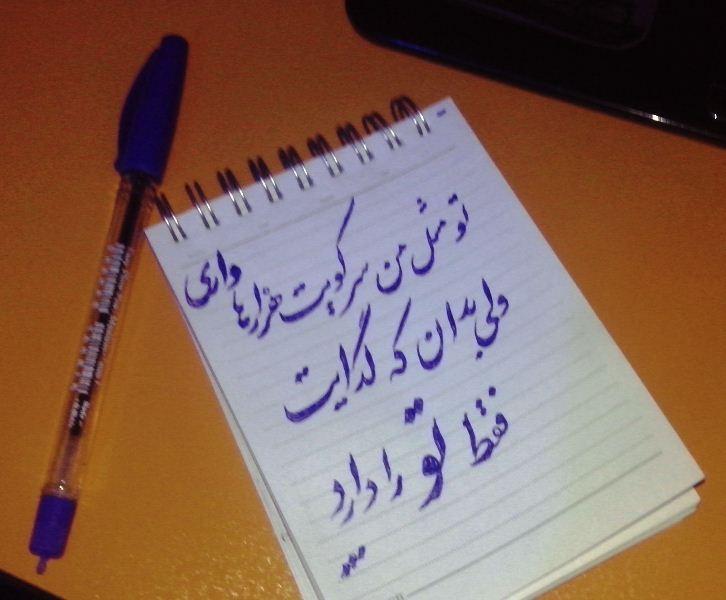 تو مثل من سر کویت هزارها داری
ولی بدان که گدایت
فقط تو را دارد
...